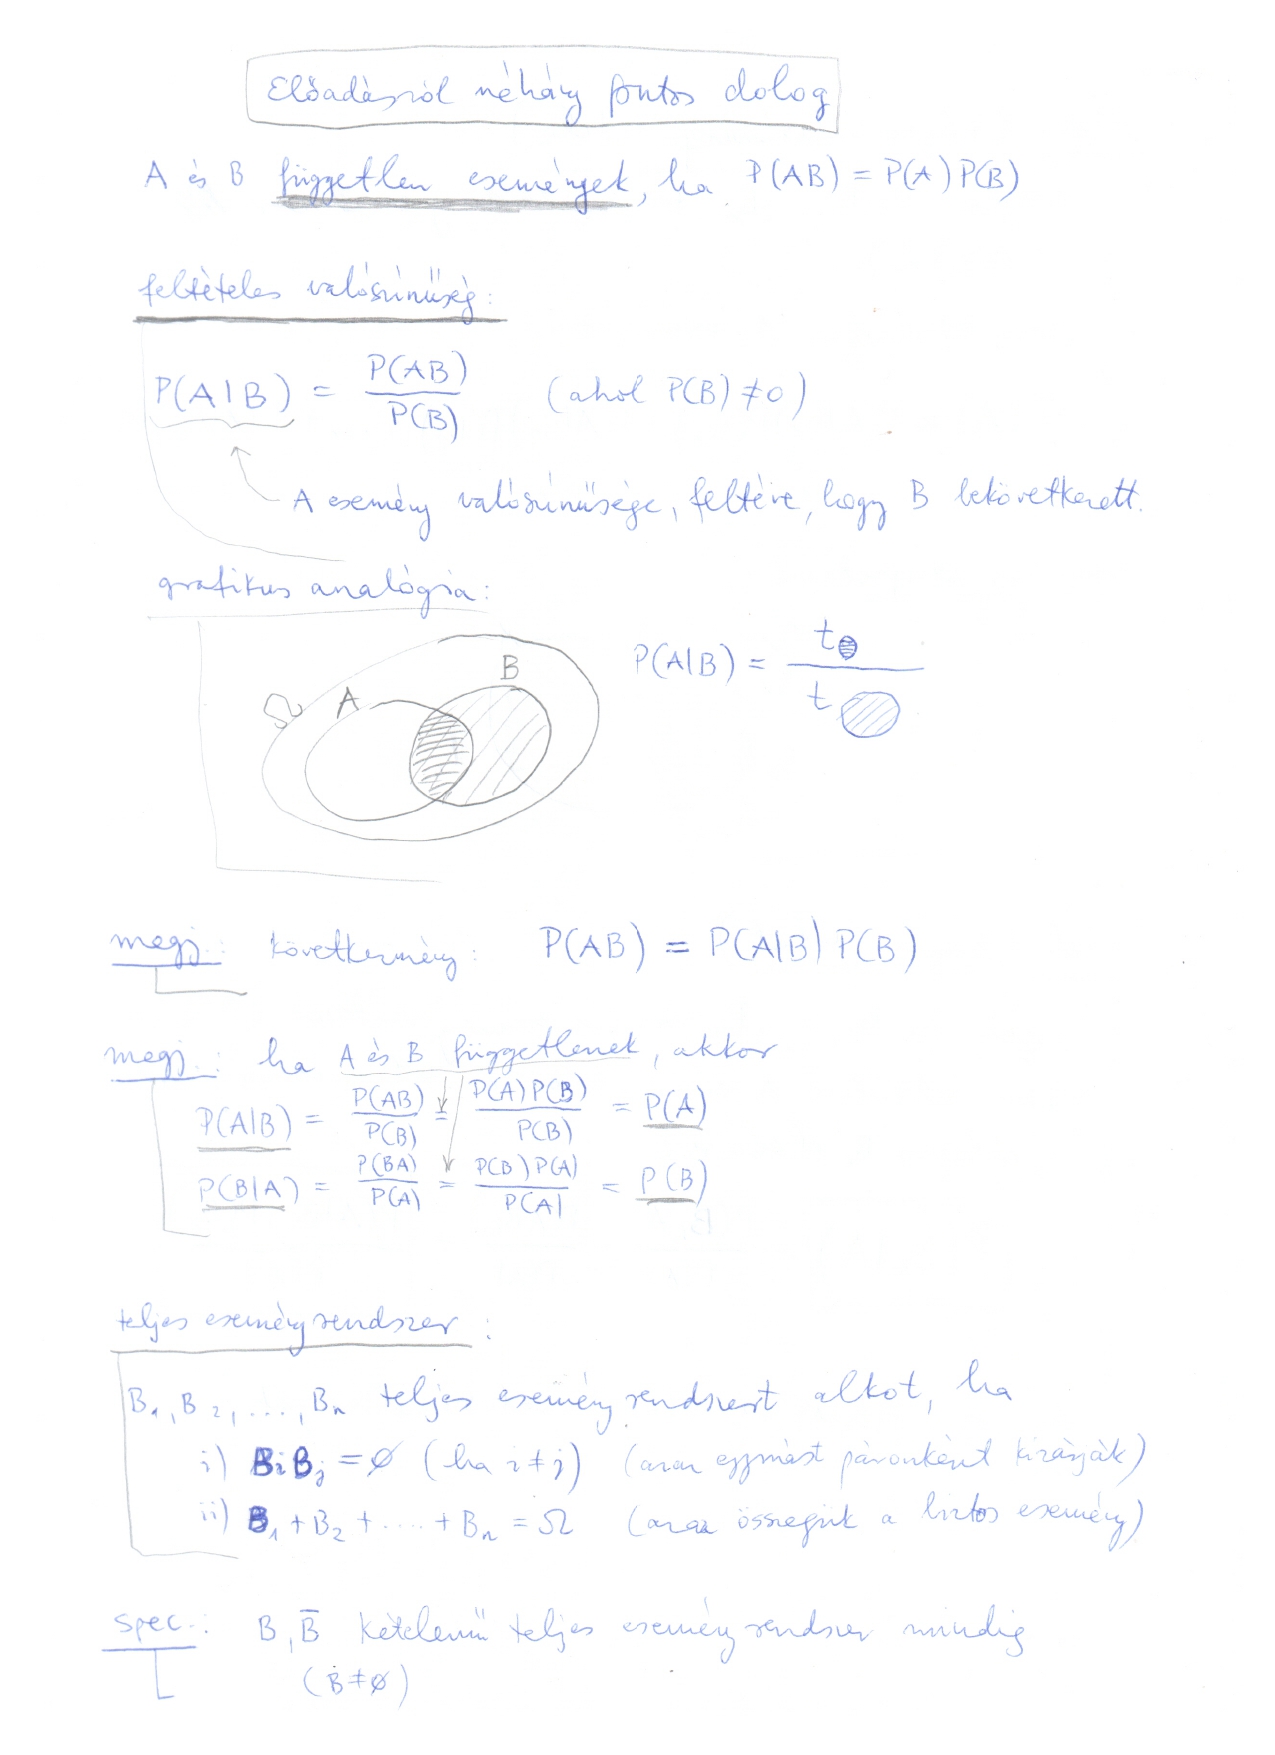 Előadásról néhány fontos dolog
A és B független események, ha P(AB) = P(A) P(B)
feltételes valószínűség:
P(A|B) = P(AB) / P(B) (ahol P(B) ≠ 0)
A esemény valószínűsége, feltéve, hogy B bekövetkezett.
grafikus analógia:
Ω A B
P(A|B) = t / t
megj.: következmény: P(AB) = P(A|B) P(B)
megj.: ha A és B függetlenek, akkor
P(A|B) = P(AB) / P(B) = P(A) P(B) / P(B) = P(A)
P(B|A) = P(BA) / P(A) = P(B) P(A) / P(A) = P(B)
teljes eseményrendszer:
B₁, B₂, ..., Bₙ teljes eseményrendszert alkot, ha
i) BᵢBⱼ = ∅ (ha i ≠ j) (azaz egymást páronként kizárják)
ii) B₁ + B₂ + .... + Bₙ = Ω (azaz összegük a biztos esemény)
spec.: B, B̄ kételemű teljes eseményrendszer mindig
(B ≠ ∅)